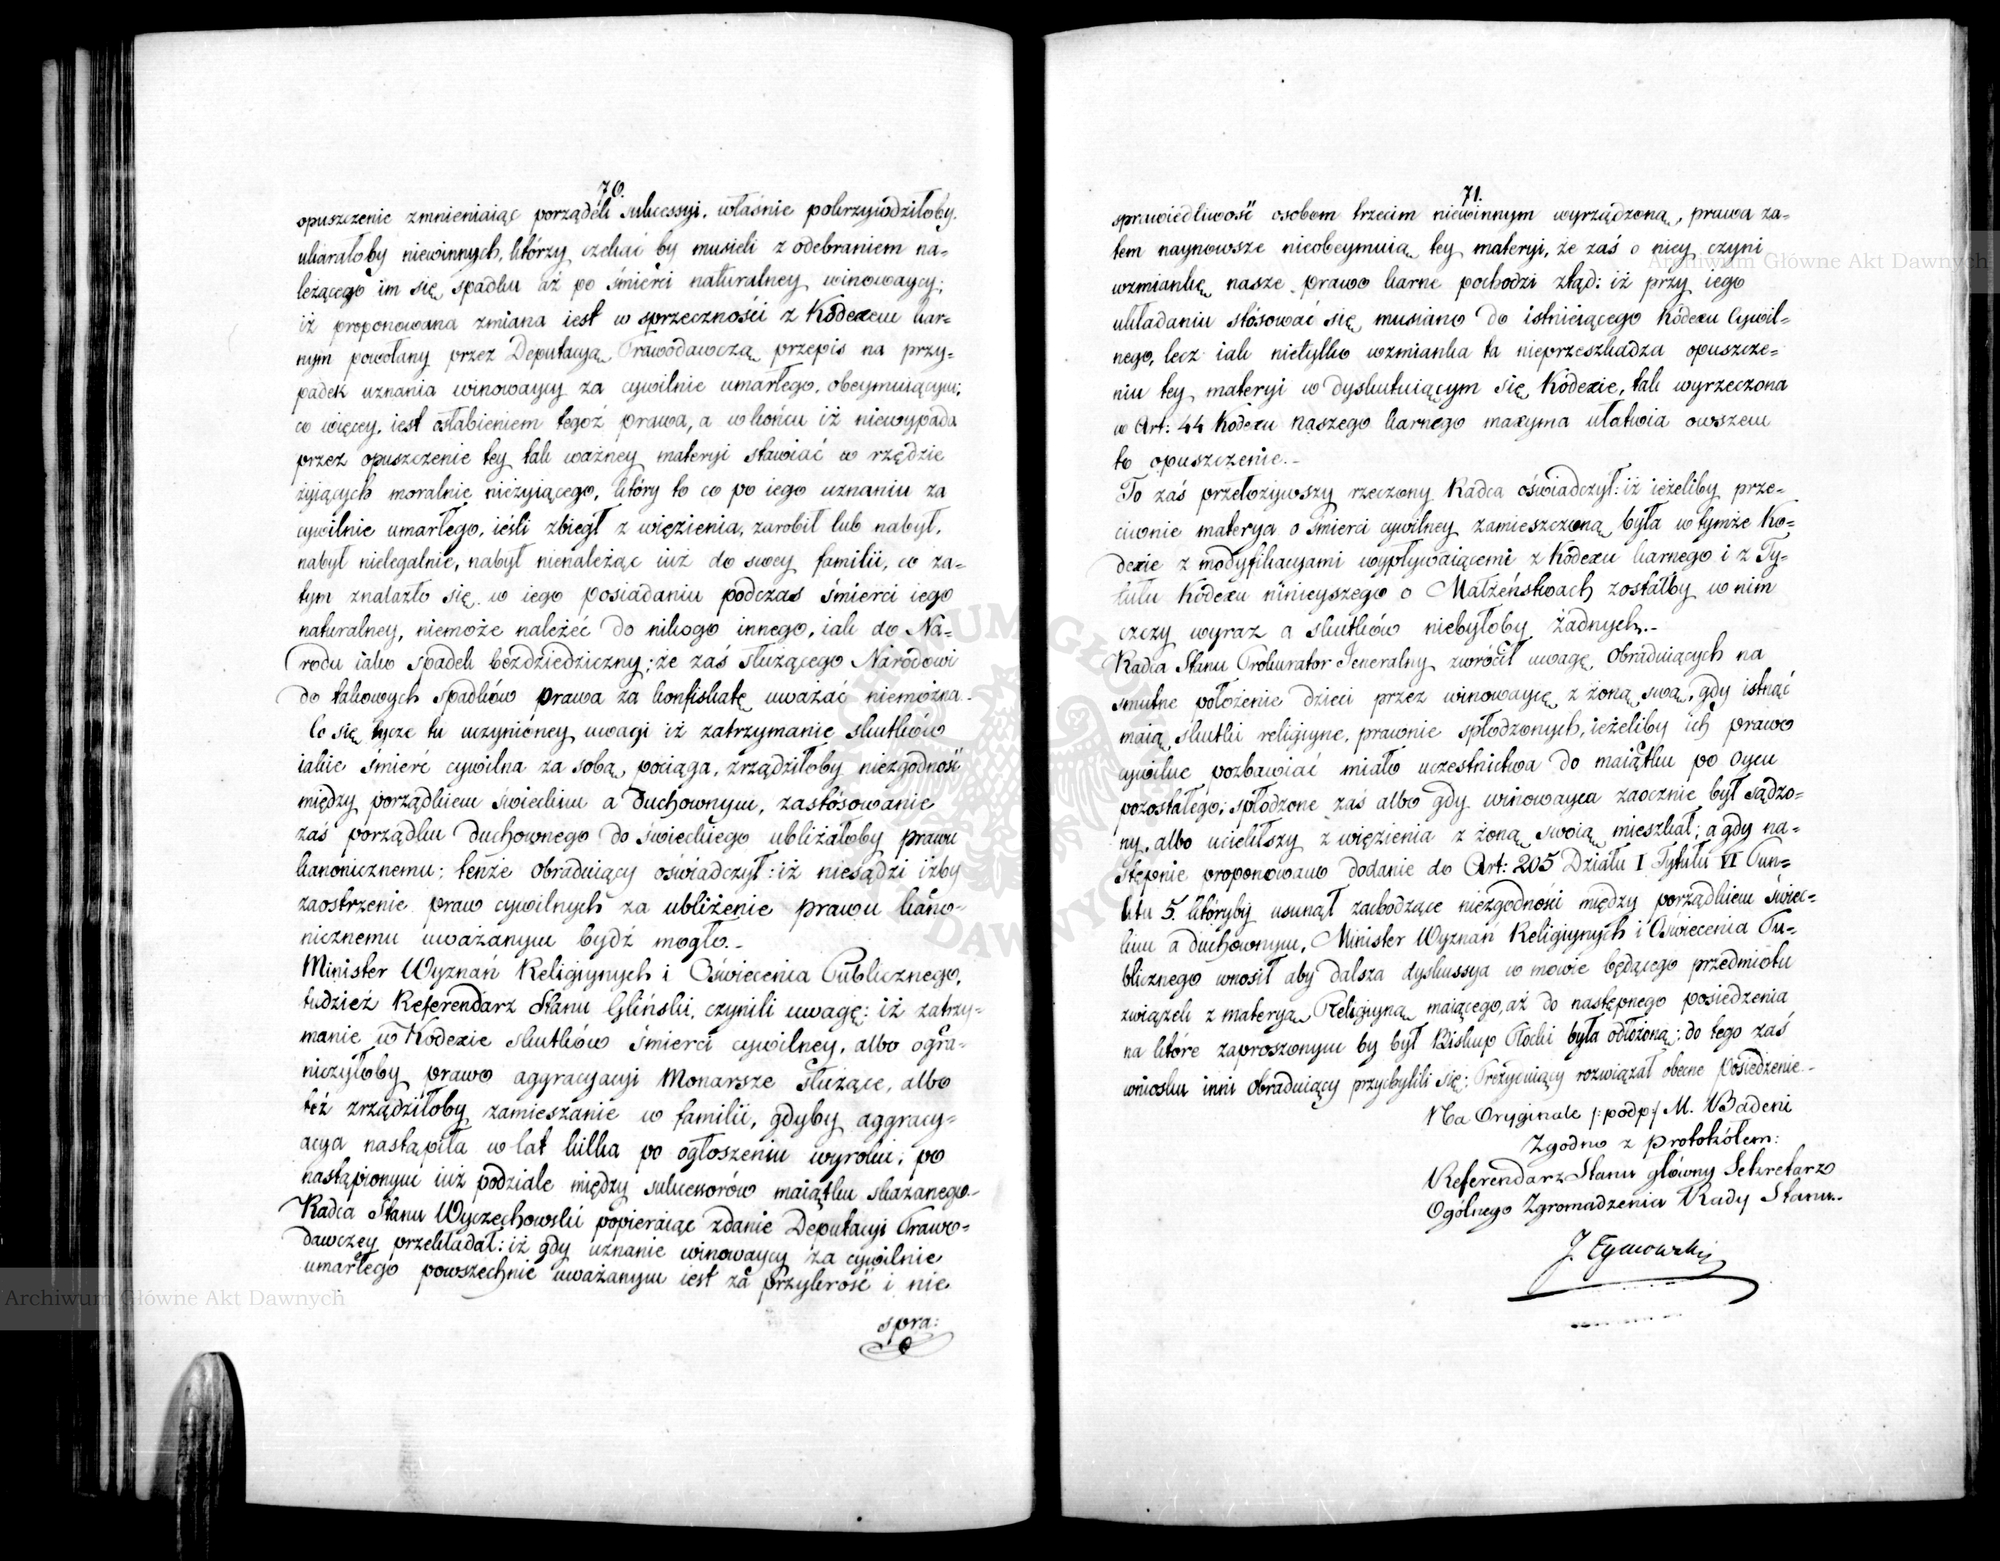 70.
opuszczenie zmnieniaiąc porządek sukcessyi, właśnie pokrzywdziłoby,
ukarałoby niewinnych, którzy czekać by musieli z odebraniem na-
leżącego im się spadku aż po śmierci naturalney winowaycy;
iż proponowana zmiana iest w sprzeczności z Kodexem kar-
nym powołany przez Deputacyą Prawodawczą przepis na przy-
padek uznania winowaycy za cywilnie umarłego, obeymuiącym;
co więcey, iest osłabieniem tegoż prawa, a w końcu iż niewypada
przez opuszczenie tey tak ważney materyi stawiać w rzędzie
żyiących moralnie nieżyiącego, który to co po iego uznaniu za
cywilnie umarłego, ieśli zbiegł z więzienia, zarobił lub nabył,
nabył nielegalnie, nabył nienależąc iuż do swey familii, co za-
tym znalazło się w iego posiadaniu podczas śmierci iego
naturalney, niemoże należeć do nikogo innego, iak do Na-
rodu iako spadek bezdziedziczny; że zaś służącego Narodowi
do takowych spadków prawa za konfiskatę uważać niemożna.-
Co się tycze tu uczynióney uwagi iż zatrzymanie skutków
iakie śmierć cywilna za sobą pociąga, zrządziłoby niezgodność
między porządkiem świeckim a duchownym, zastósowanie
zaś porządku duchownego do świeckiego ubliżałoby prawu
kanonicznemu; tenże obraduiący oświadczył: iż niesądzi iżby
zaostrzenie praw cywilnych za ubliżenie prawu kano-
nicznemu uważanym bydź mogło.-
Minister Wyznań Religiynych i Oświecenia Publicznego,
tudzież Referendarz Stanu Gliński, czynili uwagę: iż zatrzy-
manie w Kodexie skutków śmierci cywilney, albo ogra-
niczyłoby prawo aggracyacyi Monarsze służące, albo
też zrządziłoby zamieszanie w familii, gdyby aggracy-
acya nastąpiła w lat kilka po ogłoszeniu wyroku, po
nastąpionym iuż podziale między sukcessorów maiątku skazanego.-
Radca Stanu Wyczechowski popieraiąc zdanie Deputacyi Prawo-
dawczey przekładał: iż gdy uznanie winowaycy za cywilnie
umarłego powszechnie uważanym iest za przykrość i nie
spra:
71.
sprawiedliwość osobom trzecim niewinnym wyrządzoną, prawa za-
tem naynowsze nieobeymuią tey materyi, że zaś o niey czyni
wzmiankę nasze prawo karne pochodzi ztąd: iż przy iego
układaniu stósować się musiano do istnieiącego Kódexu Cywil-
nego, lecz iak nietylko wzmianka ta nieprzeszkadza opuszcze-
niu tey materyi w dyskutuiącym się Kódexie, tak wyrzeczona
w Art: 44 Kodexu naszego karnego maxyma ułatwia owszem
to opuszczenie.-
To zaś przełożywszy rzeczony Radca oświadczył: iż ieżeliby prze-
ciwnie materya o śmierci cywilney zamieszczoną była w tymże Ko-
dexie z modyfikacyami wypływaiącemi z Kodexu karnego i z Ty-
tułu Kódexu ninieyszego o Małżeństwach zostałby w nim
czczy wyraz a skutków niebyłoby żadnych.-
Radca Stanu Prokurator Jeneralny zwrócił uwagę, obraduiących na
smutne położenie dzieci przez winowaycę z żoną swą, gdy istnąć
maią skutki religiyne, prawnie spłodzonych, ieżeliby ich prawo
cywilne pozbawiać miało uczestnictwa do maiątku po Oycu
pozostałego; spłodzone zaś albo gdy winowayca zaocznie był sądzo-
ny, albo uciekłszy z więzienia z żoną swoią mieszkał; a gdy na-
stępnie proponowano dodanie do Art: 205 Działu I Tytułu VI Pun-
ktu 5. któryby usunął zachodzące niezgodności między porządkiem świec-
kim a duchownym, Minister Wyznań Religiynych i Oświecenia Pu-
blicznego wnosił aby dalsza dyskussya w mowie będącego przedmiotu
związek z materyą Religiyną maiącego, aż do następnego posiedzenia
na które zaproszonym by był Biskup Płocki była odłożoną; do tego zaś
wniosku inni obraduiący przychylili się; Prezyduiący rozwiązał obecne Posiedzenie.-
Na Oryginale /:podp:/ M. Badeni
Zgodno z protokółem:
Referendarz Stanu główny Sekretarz
Ogólnego Zgromadzenia Rady Stanu.
J. Tymowski
Archiwum Główne Akt Dawnych
Archiwum Główne Akt Dawnych
ARCHIWUM GŁÓWNE AKT DAWNYCH